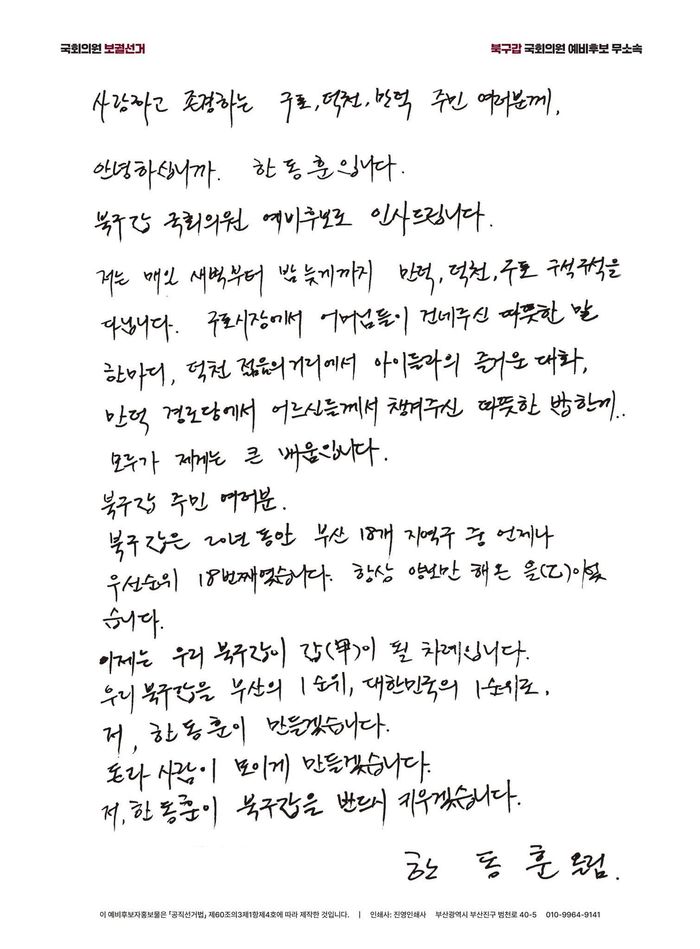 국회의원 보궐선거
북구갑 국회의원 예비후보 무소속
사랑하고 존경하는 구포, 덕천, 만덕 주민 여러분께,
안녕하십니까. 한동훈입니다.
북구갑 국회의원 예비후보로 인사드립니다.
저는 매일 새벽부터 밤 늦게까지 만덕, 덕천, 구포 구석구석을
다닙니다. 구포시장에서 어머님들이 건네주신 따뜻한 말
한마디, 덕천 젊음의거리에서 아이들과의 즐거운 대화,
만덕 경로당에서 어르신들께서 챙겨주신 따뜻한 밥한끼..
모두가 제게는 큰 배움입니다.
북구갑 주민 여러분.
북구갑은 20년 동안 부산 18개 지역구 중 언제나
우선순위 18번째였습니다. 항상 양보만 해온 을(乙)이었
습니다.
이제는 우리 북구갑이 갑(甲)이 될 차례입니다.
우리 북구갑을 부산의 1순위, 대한민국의 1순위로,
저, 한동훈이 만들겠습니다.
돈과 사람이 모이게 만들겠습니다.
저, 한동훈이 북구갑을 반드시 키우겠습니다.
한 동 훈 올림.
이 예비후보자홍보물은 「공직선거법」 제60조의3제1항제4호에 따라 제작한 것입니다. | 인쇄사: 진영인쇄사 부산광역시 부산진구 범천로 40-5 010-9964-9141